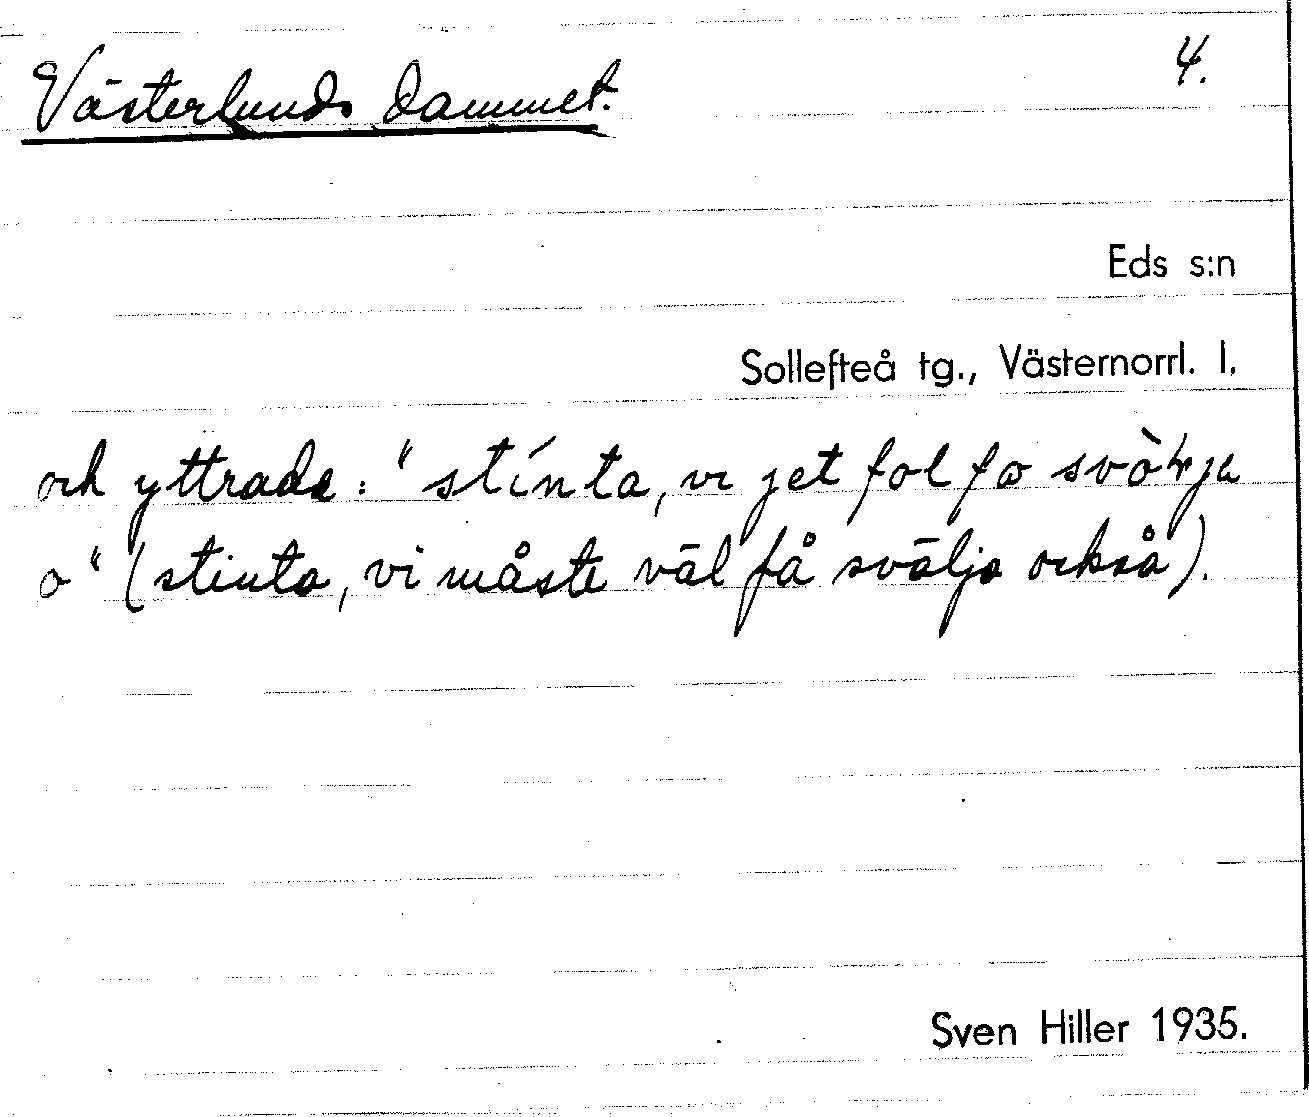 Västerlunds dammet.
4.
Eds s:n
Sollefteå tg., Västernorrl. l.
och yttrade: "stínta, vi jet fol fo
o" (stinta, vi måste väl få svälja också).
Sven Hiller 1935.